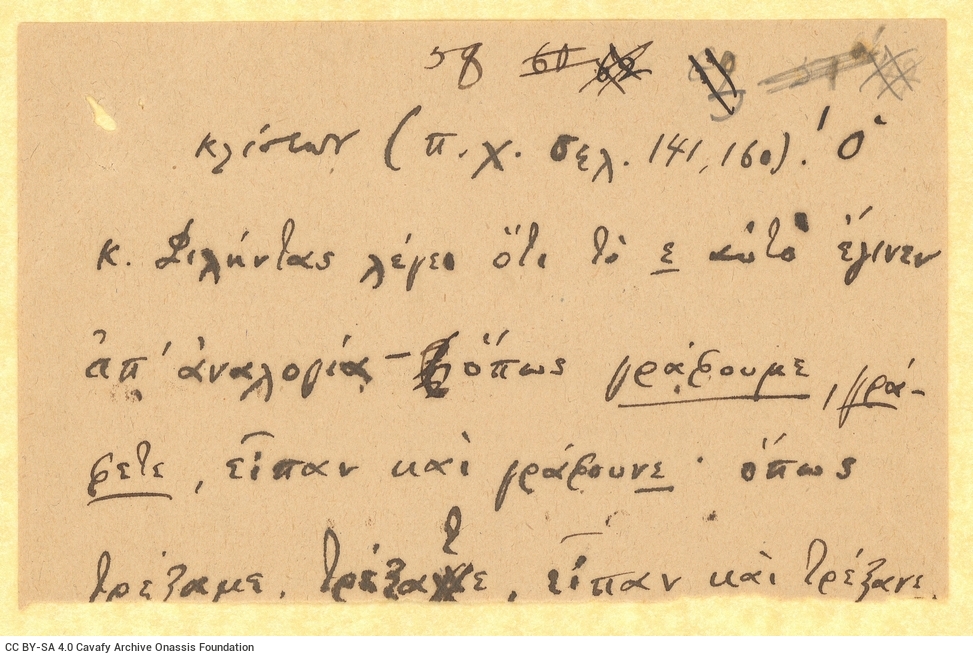 58 60 62
κλίσεων (π.χ. σελ. 141, 160). Ὁ
κ. Φιλήντας λέγει ὅτι τὸ ε αὐτὸ ἔγινεν
ἀπ' ἀναλογία — ὅπως γράφουμε, γρά-
φετε, εἶπαν καὶ γράφουνε · ὅπως
τρέξαμε, τρέξατε, εἶπαν καὶ τρέξανε.
CC BY-SA 4.0 Cavafy Archive Onassis Foundation